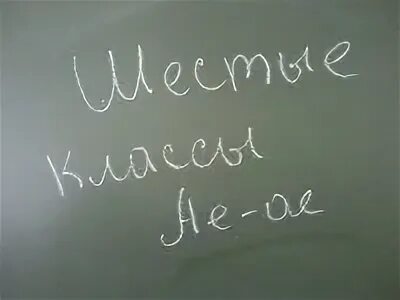 Шестые
классы
Не-ое